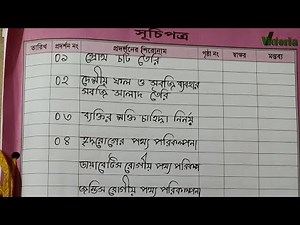 সূচিপত্র
Victoria
তারিখ প্রদর্শন নং প্রদর্শনের শিরোনাম পৃষ্ঠা নং স্বাক্ষর মন্তব্য
০১ গ্রোথ চার্ট তৈরি
০২ দেশীয় ফল ও সবজি ব্যবহারে
সবজি সালাদ তৈরি
০৩ ব্যক্তির শক্তি চাহিদা নির্ণয়
০৪ হৃদরোগের পথ্য পরিকল্পনা
ডায়াবেটিস রোগীর পথ্য পরিকল্পনা
জন্ডিস রোগীর পথ্য পরিকল্পনা